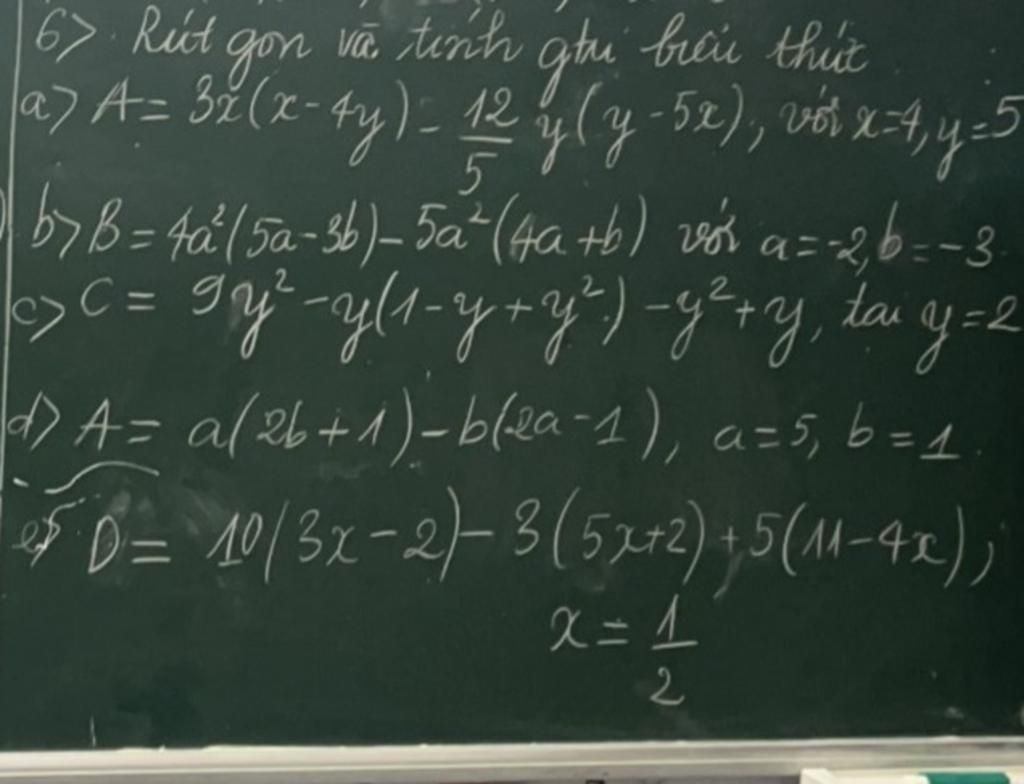 6> Rút gọn và tính gtri biểu thức
a> A = 3x(x - 4y) - 12/5 y(y - 5x), với x=4, y=5
b> B = 4a²(5a - 3b) - 5a²(4a + b) với a = -2, b = -3
c> C = 9y² - y(1 - y + y²) - y² + y, tại y = 2
d> A = a(2b + 1) - b(2a - 1), a = 5, b = 1.
e> D = 10(3x - 2) - 3(5x + 2) + 5(11 - 4x);
x = 1/2